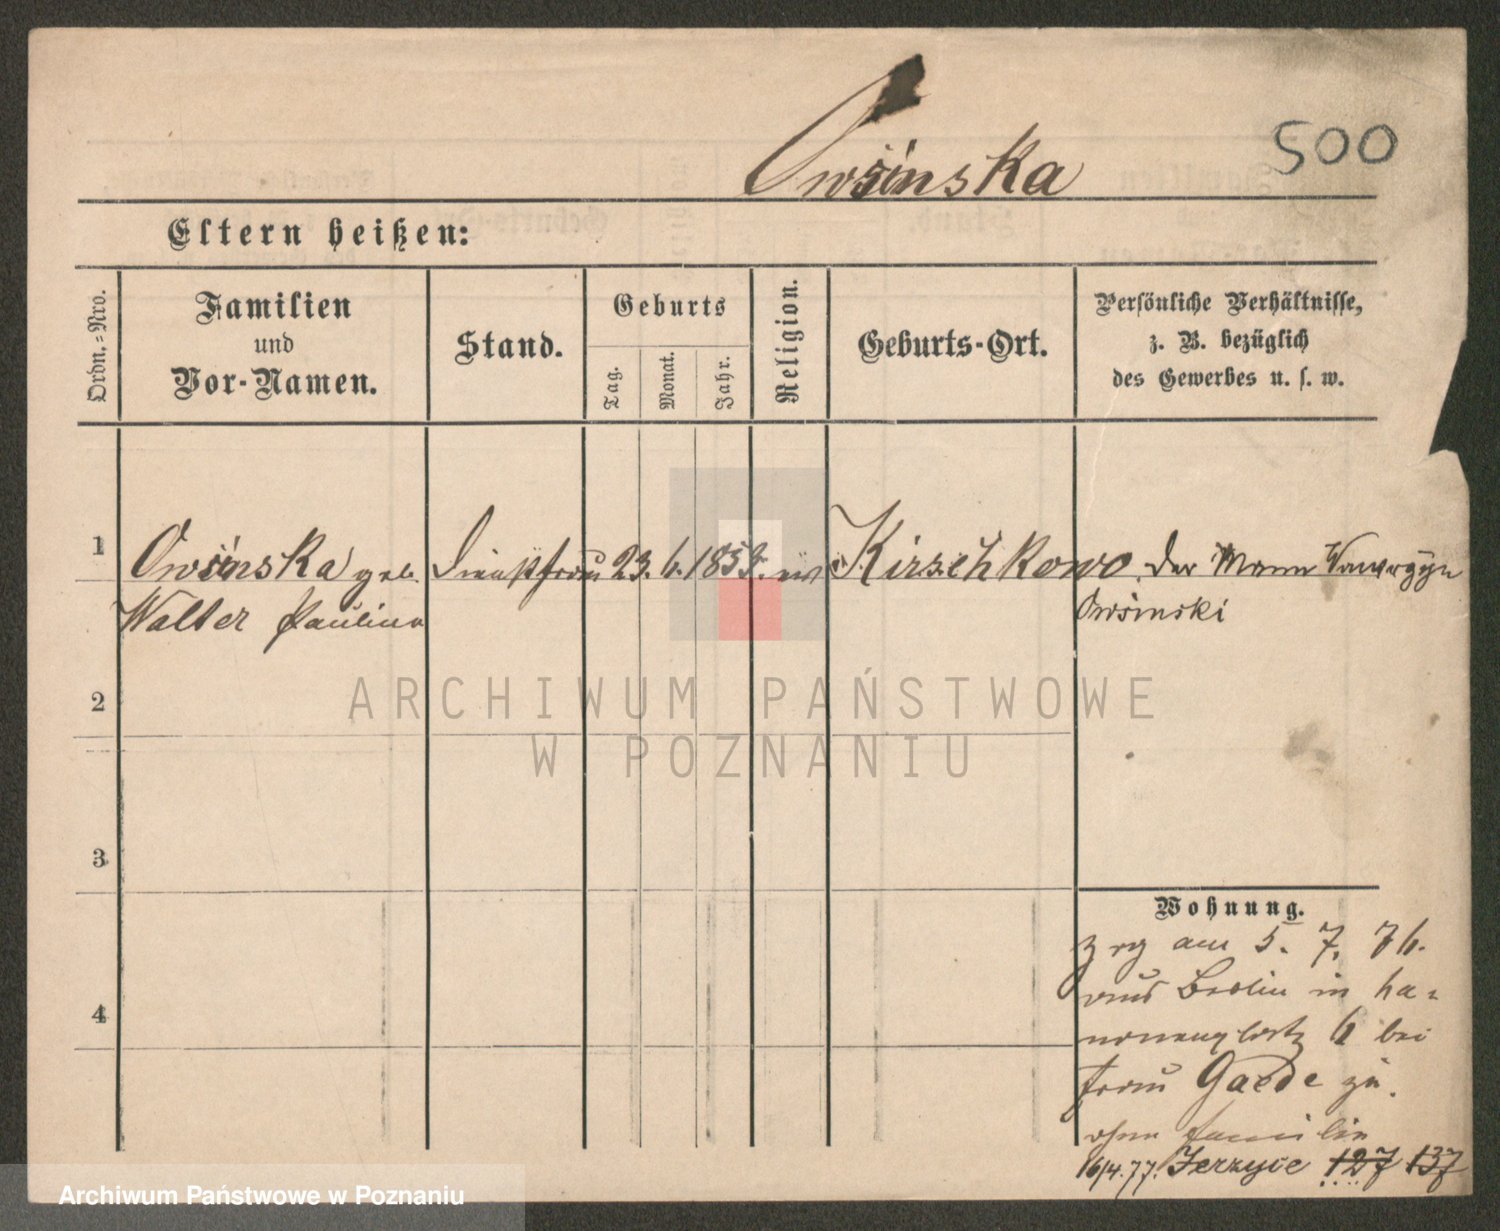 Owśinska 500
Eltern heißen:
Ordn.=Nro. Familien und Vor-Namen. Stand. Geburts Tag. Monat. Jahr. Religion. Geburts-Ort. Persönliche Verhältnisse,
z. B. bezüglich
des Gewerbes u. s. w.
1 Owśinska geb. Dienstfrau 23. 6. 1853. Kirschkowo der Mann Wawrzyn
Walter Paulina Owsinski
2
ARCHIWUM PAŃSTWOWE
W POZNANIU
3
Wohnung.
zog am 5. 7. 76.
aus Berlin in Ka=
nonenplatz 6 bei
Frau Gaede zu.
ohne Familie
4
16/4.77. Jerzyce 127 137
Archiwum Państwowe w Poznaniu